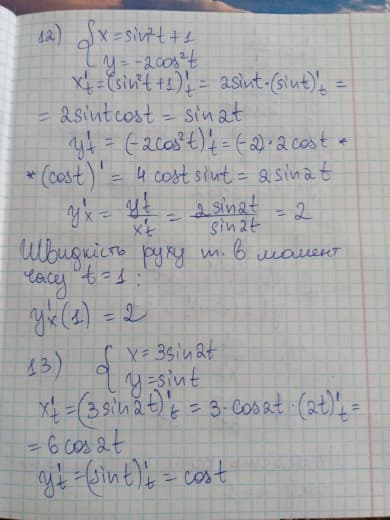 12) { x = sin²t + 1
y = -2cos²t
x't = (sin²t + 1)'t = 2sint·(sint)'t =
= 2sintcost = sin2t
y't = (-2cos²t)'t = (-2)·2cost *
* (cost)' = 4costsint = 2sin2t
y'x = y't/x't = 2sin2t/sin2t = 2
Швидкість руху т. в момент
часу t = 1 :
y'x(1) = 2
13) { x = 3sin2t
y = sint
x't = (3sin2t)'t = 3·cos2t·(2t)'t =
= 6cos2t
y't = (sint)'t = cost